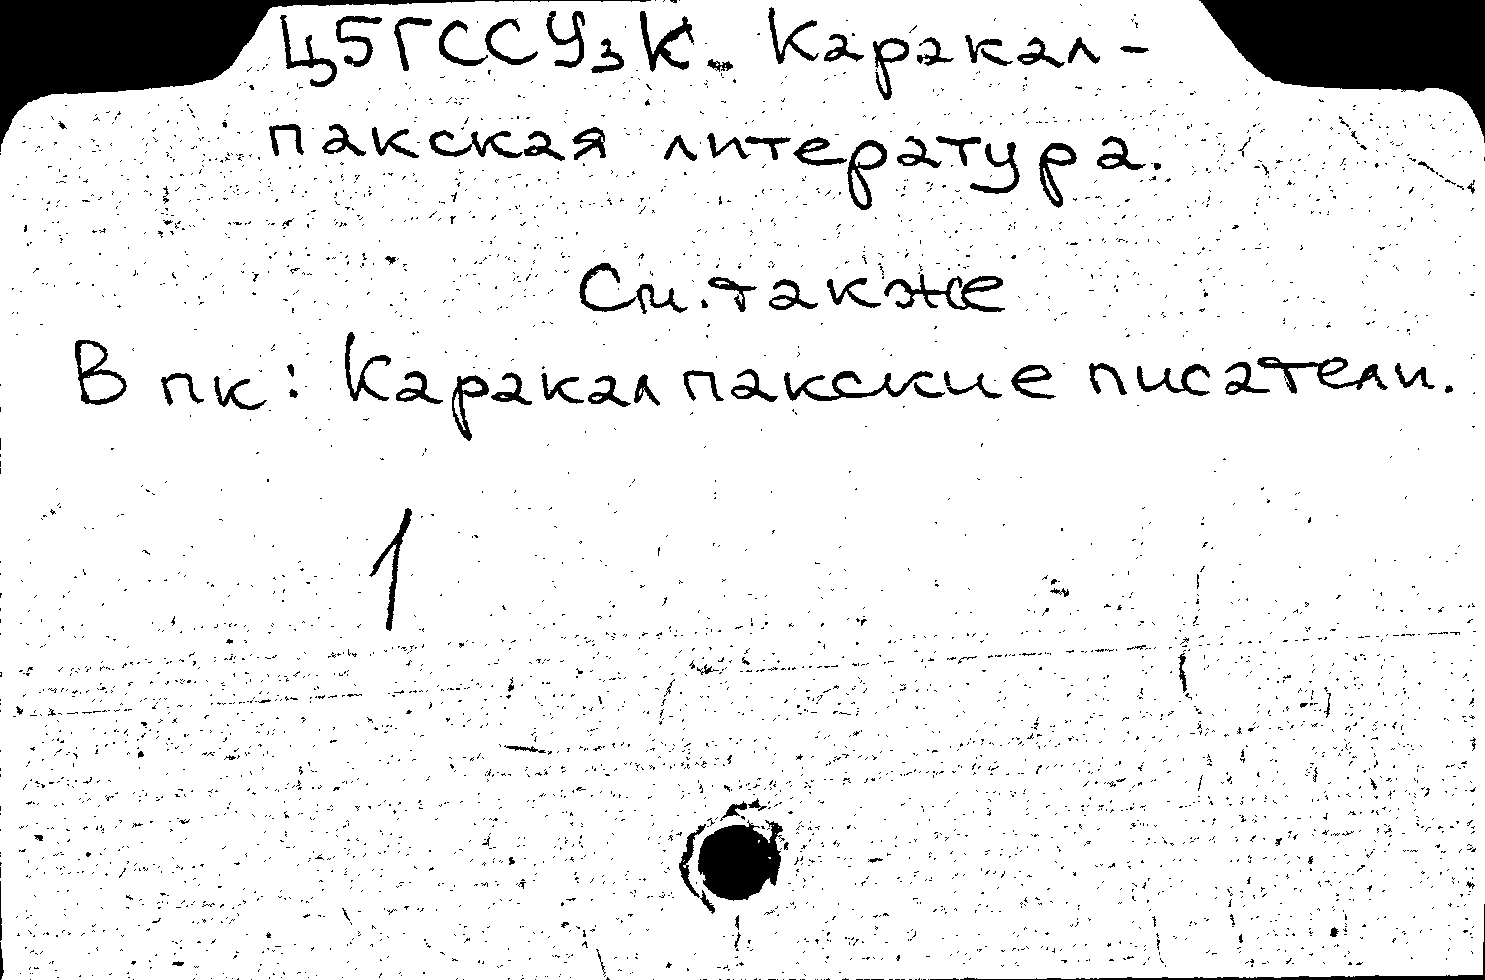 Ц5ГССУзК. Каракал-
пакская литература.
См. также
В пк: Каракалпакские писатели.
1